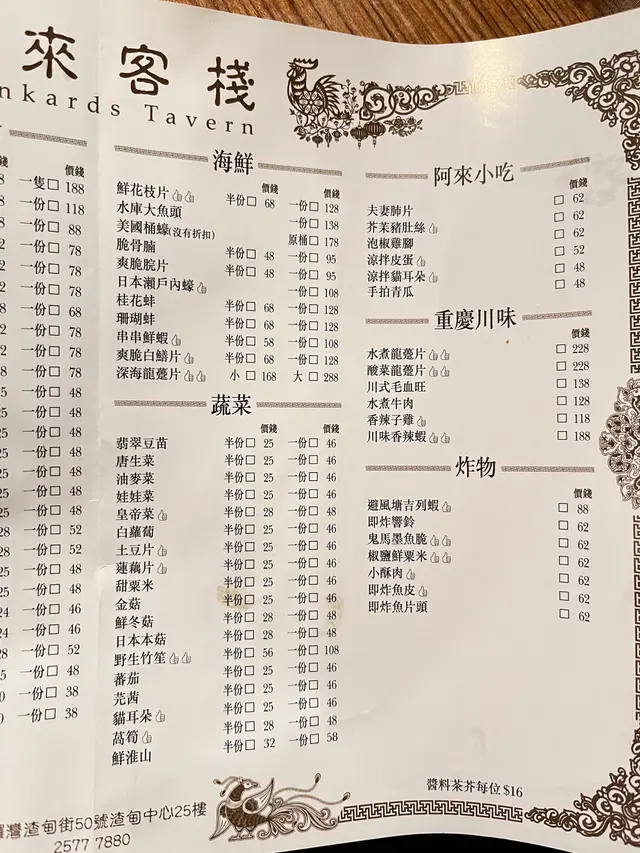 來客棧
nkards Tavern
價錢
一隻□ 188
一份□ 118
一份□ 88
一份□ 78
一份□ 78
一份□ 78
一份□ 68
一份□ 78
一份□ 78
一份□ 78
一份□ 48
一份□ 48
一份□ 48
一份□ 48
一份□ 48
一份□ 48
一份□ 48
一份□ 52
一份□ 52
一份□ 48
一份□ 48
一份□ 46
一份□ 46
一份□ 52
一份□ 48
一份□ 38
一份□ 38
海鮮
價錢 價錢
鮮花枝片 半份□ 68 一份□ 128
水庫大魚頭 一份□ 138
美國桶蠔(沒有折扣) 原桶□ 178
脆骨腩 半份□ 48 一份□ 95
爽脆脘片 半份□ 48 一份□ 95
日本瀨戶內蠔 一份□ 108
桂花蚌 半份□ 68 一份□ 128
珊瑚蚌 半份□ 68 一份□ 128
串串鮮蝦 半份□ 58 一份□ 108
爽脆白鱔片 半份□ 68 一份□ 128
深海龍躉片 小□ 168 大□ 288
蔬菜
價錢 價錢
翡翠豆苗 半份□ 25 一份□ 46
唐生菜 半份□ 25 一份□ 46
油麥菜 半份□ 25 一份□ 46
娃娃菜 半份□ 25 一份□ 46
皇帝菜 半份□ 28 一份□ 48
白蘿蔔 半份□ 25 一份□ 46
土豆片 半份□ 25 一份□ 46
蓮藕片 半份□ 25 一份□ 46
甜粟米 半份□ 25 一份□ 46
金菇 半份□ 25 一份□ 46
鮮冬菇 半份□ 28 一份□ 48
日本本菇 半份□ 28 一份□ 48
野生竹笙 半份□ 56 一份□ 108
蕃茄 半份□ 25 一份□ 46
芫茜 半份□ 25 一份□ 46
貓耳朵 半份□ 25 一份□ 46
萵筍 半份□ 28 一份□ 48
鮮淮山 半份□ 32 一份□ 58
阿來小吃
價錢
夫妻肺片 □ 62
芥茉豬肚絲 □ 62
泡椒雞腳 □ 62
涼拌皮蛋 □ 52
涼拌貓耳朵 □ 48
手拍青瓜 □ 48
重慶川味
價錢
水煮龍躉片 □ 228
酸菜龍躉片 □ 228
川式毛血旺 □ 138
水煮牛肉 □ 128
香辣子雞 □ 118
川味香辣蝦 □ 188
炸物
價錢
避風塘吉列蝦 □ 88
即炸響鈴 □ 62
鬼馬墨魚脆 □ 62
椒鹽鮮粟米 □ 62
小酥肉 □ 62
即炸魚皮 □ 62
即炸魚片頭 □ 62
醬料茶芥每位 $16
灣渣甸街50號渣甸中心25樓
2577 7880